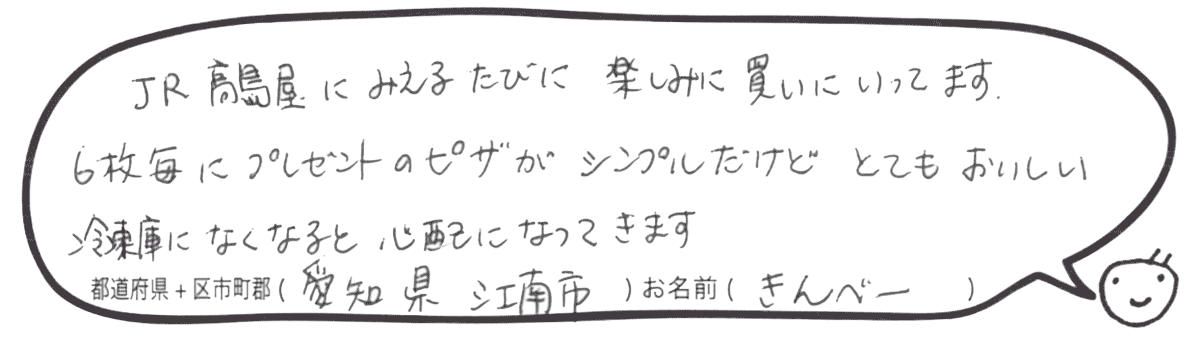 JR高島屋にみえるたびに 楽しみに買いにいってます.
6枚毎にプレゼントのピザがシンプルだけど とてもおいしい
冷凍庫になくなると心配になってきます
都道府県+区市町郡(愛知県 江南市)お名前(きんべー)